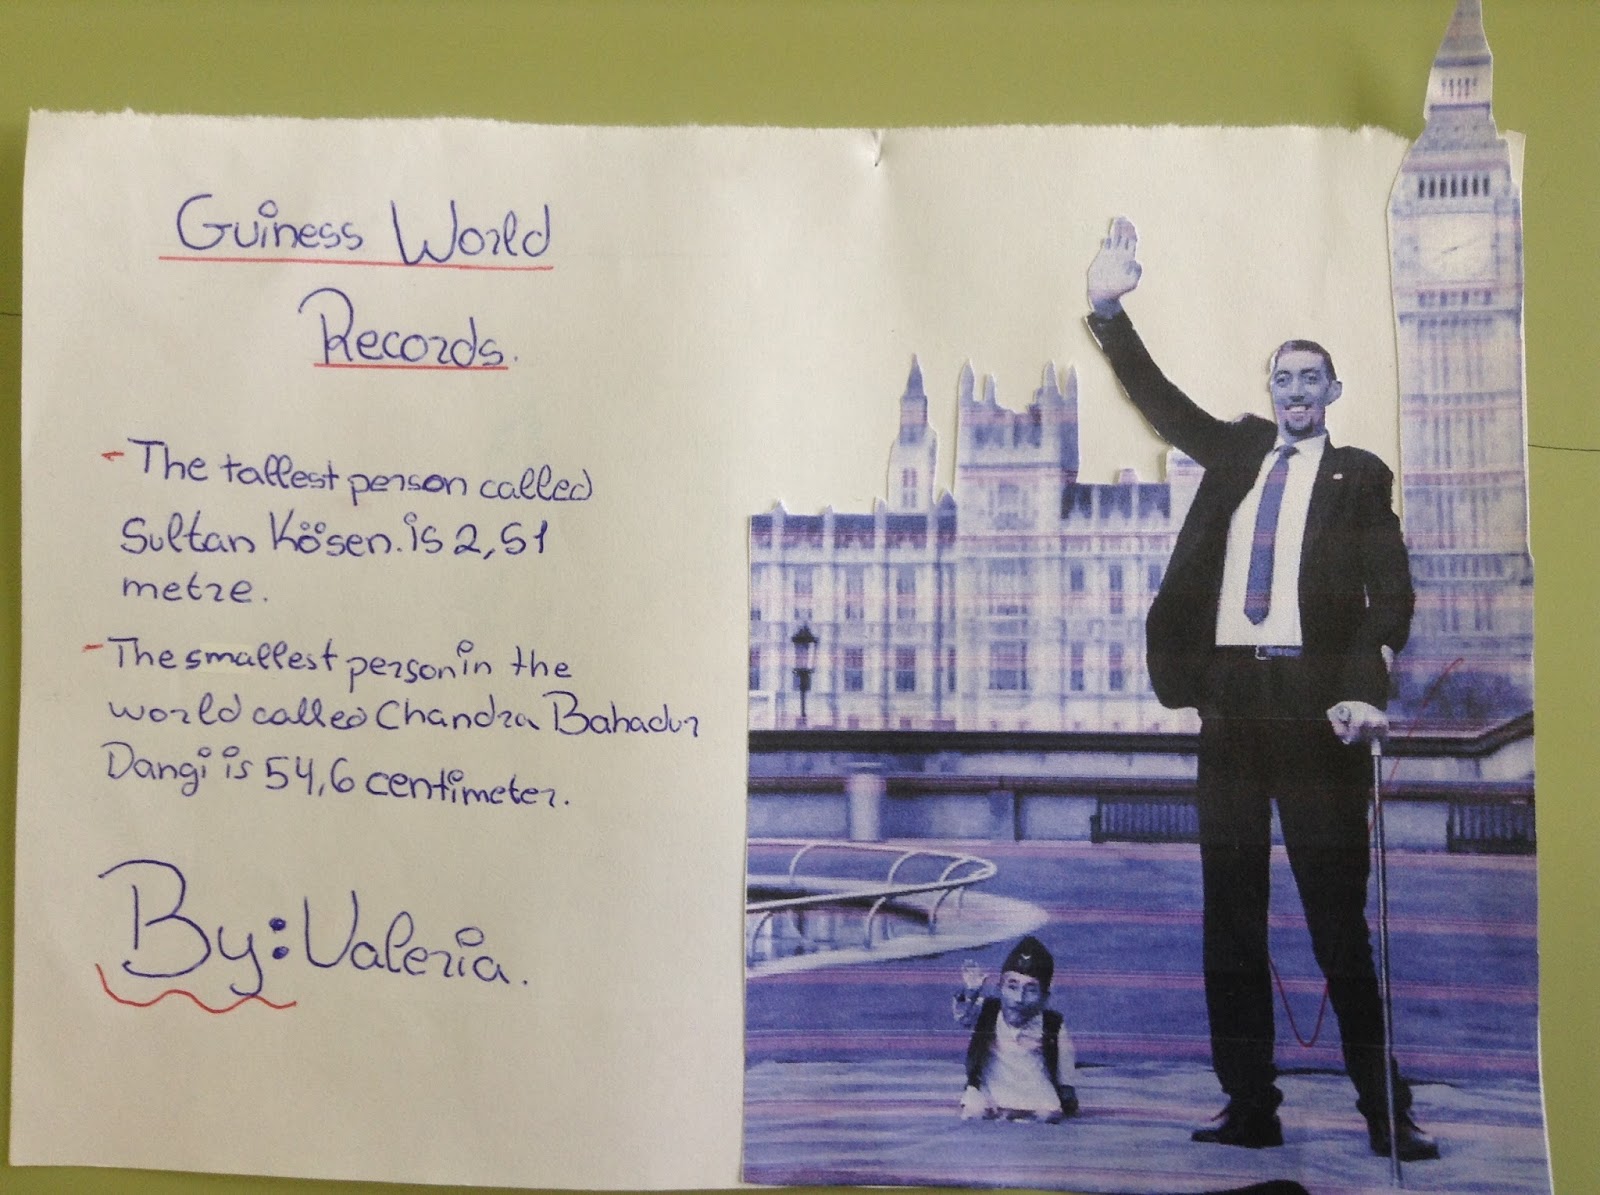 Guiness World
Records.
- The tallest person called
Sultan Kösen. is 2,51
metre.
- The smallest person in the
world called Chandra Bahadur
Dangi is 54,6 centimeter.
By: Valeria.